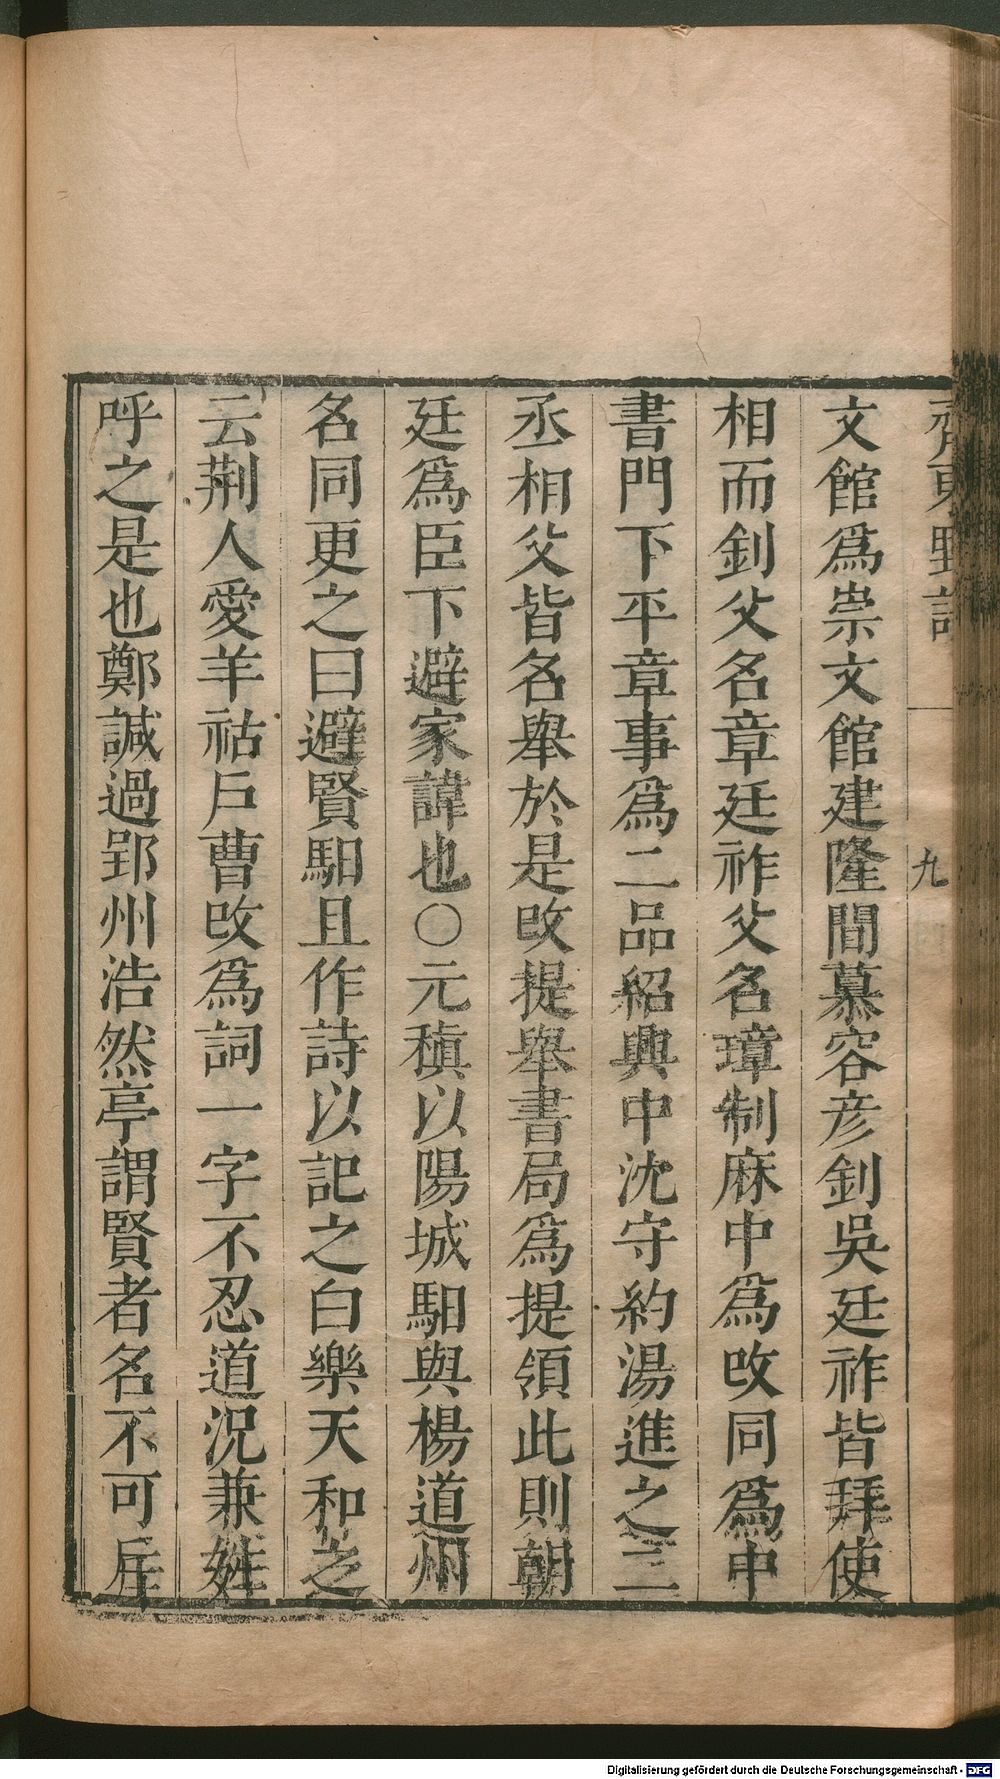 齊東野語
九
文館爲崇文館建隆間慕容彥釗吳廷祚皆拜使
相而釗父名章廷祚父名璋制麻中爲改同爲中
書門下平章事爲二品紹興中沈守約湯進之二
丞相父皆名舉於是改提舉書局爲提領此則朝
廷爲臣下避家諱也〇元稹以陽城馹與楊道州
名同更之曰避賢馹且作詩以記之白樂天和之
云荆人愛羊祜戶曹改爲詞一字不忍道況兼姓
呼之是也鄭諴過郢州浩然亭謂賢者名不可斥
Digitalisierung gefördert durch die Deutsche Forschungsgemeinschaft - DFG